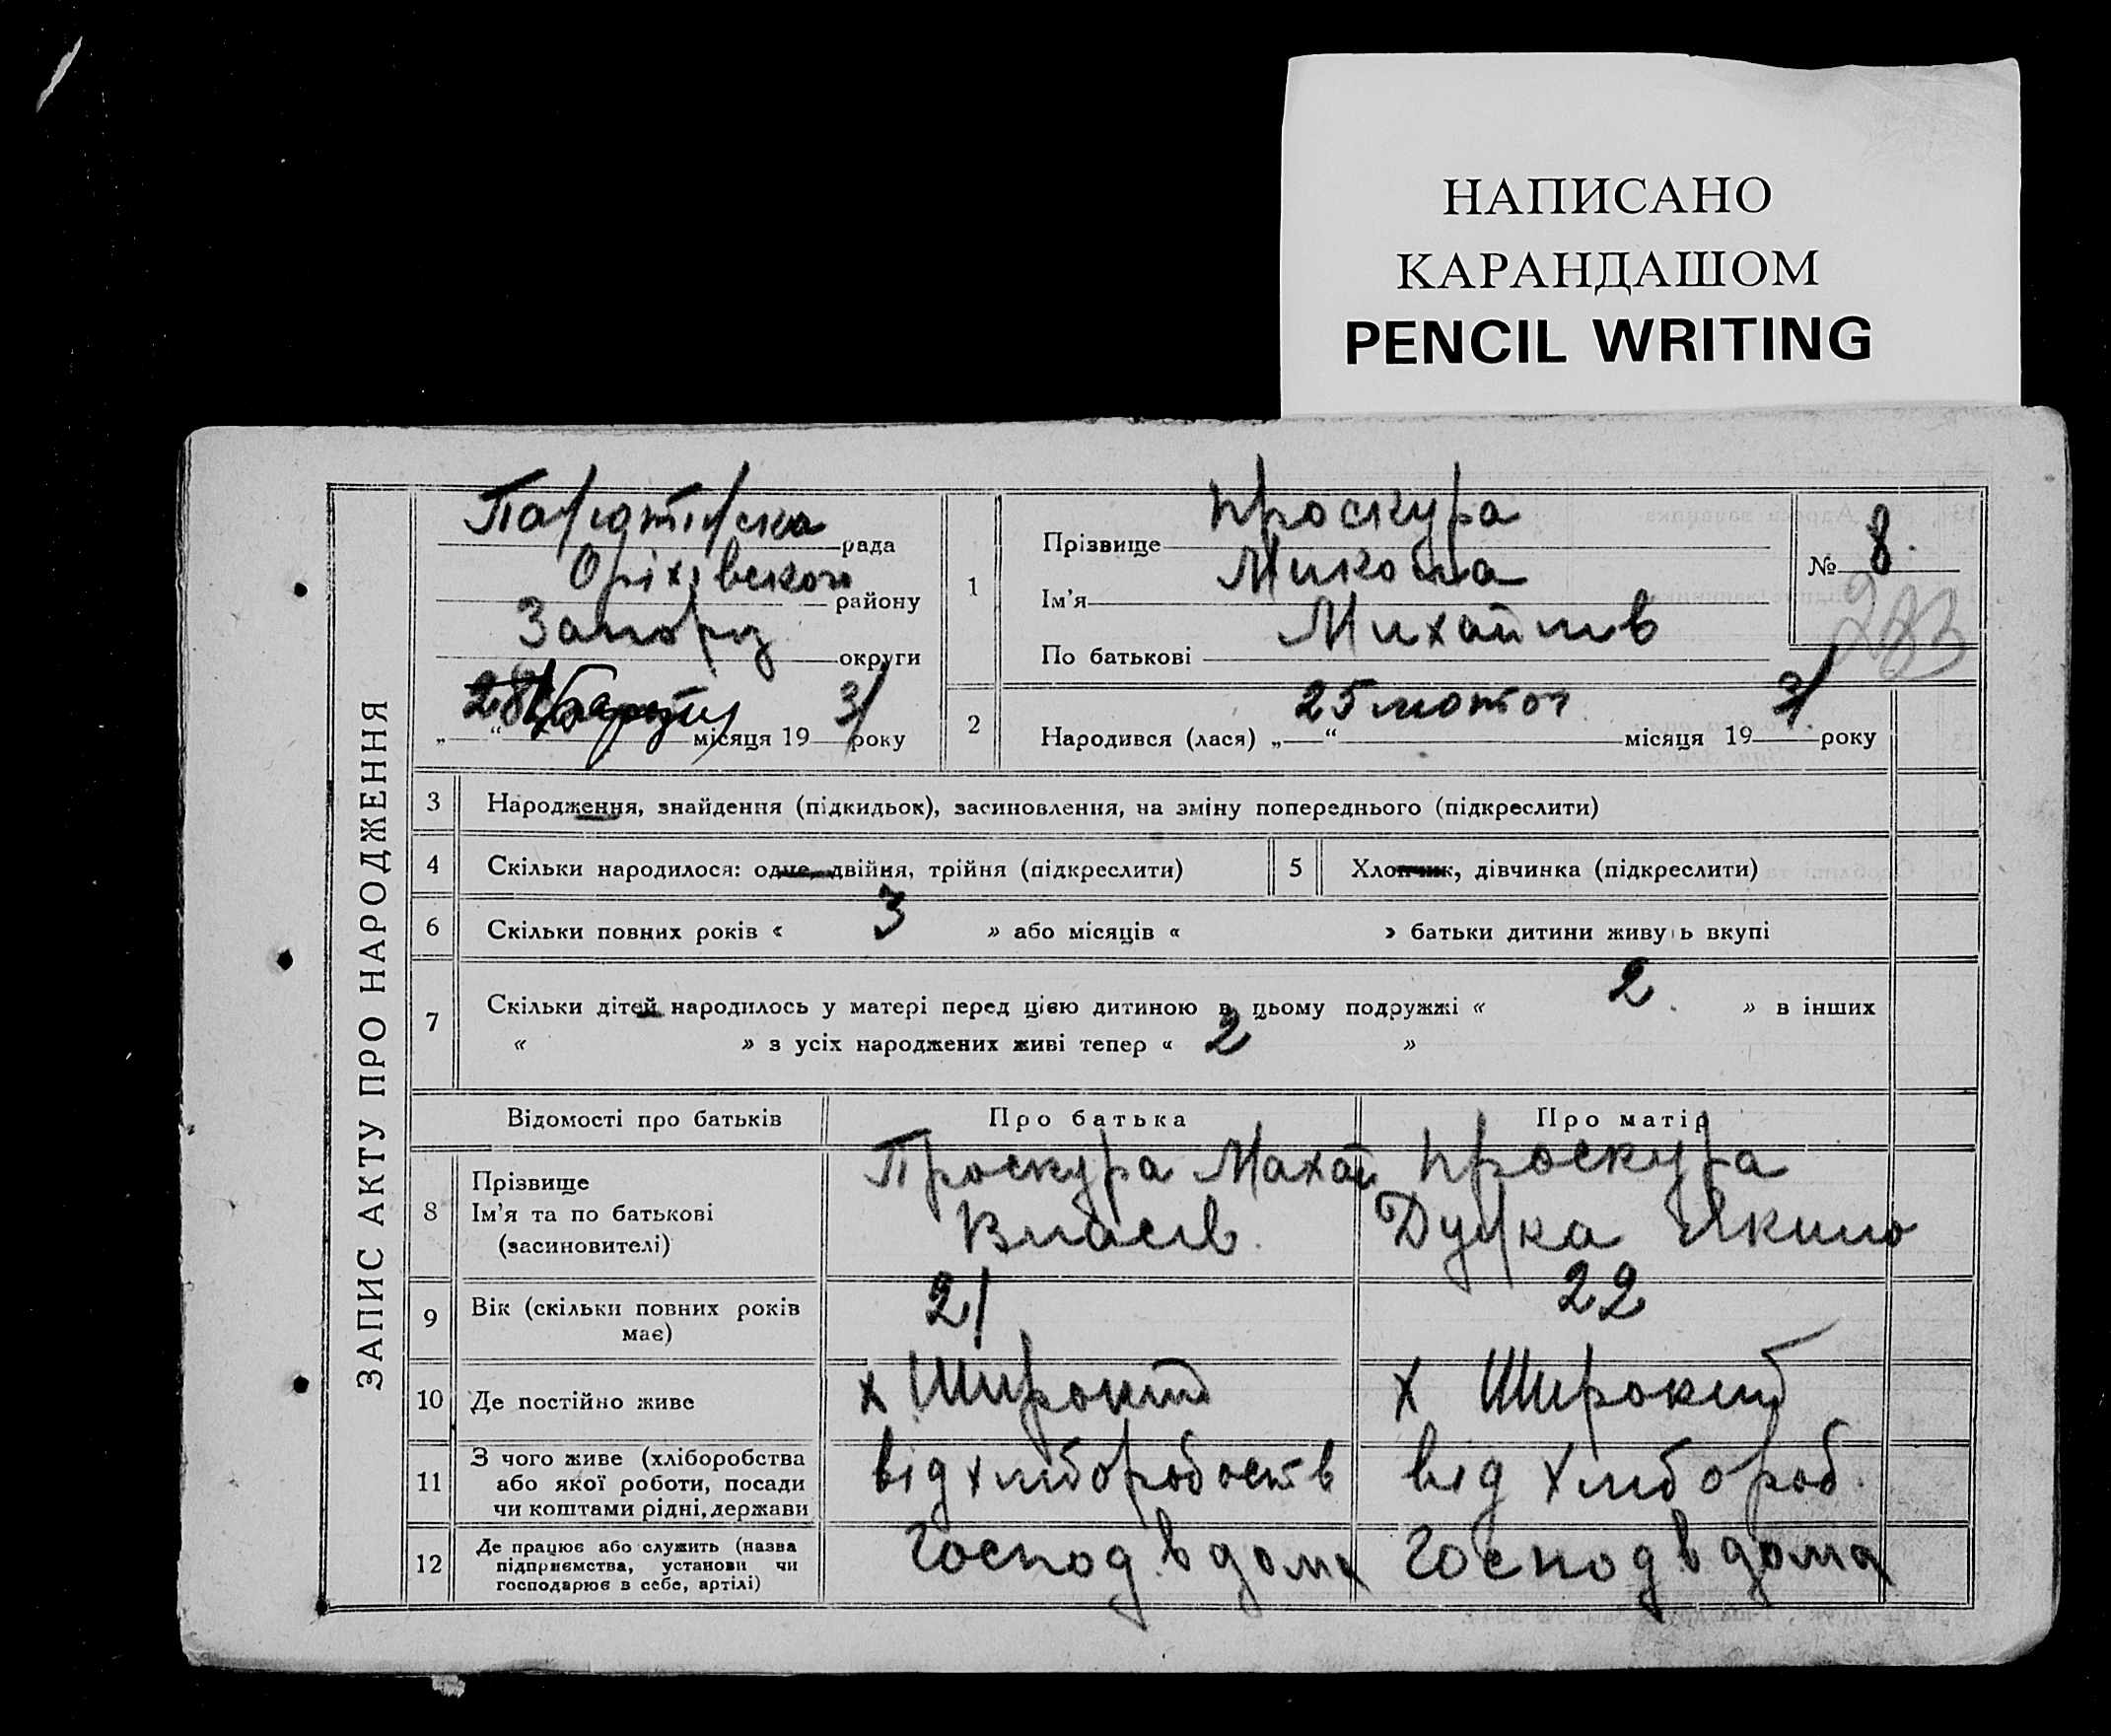 НАПИСАНО
КАРАНДАШОМ
PENCIL WRITING
ЗАПИС АКТУ ПРО НАРОДЖЕННЯ
рада
Оріхівского району
Запоріз округи
„28“ місяця 1931 року
1 Прізвище Проскура
Ім’я Микола
По батькові Михайлов
№ 8.
283
2 Народився (лася) „25“ лютог місяця 1931 року
3 Народження, знайдення (підкидьок), засиновлення, на зміну попереднього (підкреслити)
4 Скільки народилося: одне, двійня, трійня (підкреслити) 5 Хлопчик, дівчинка (підкреслити)
6 Скільки повних років « 3 » або місяців « » батьки дитини живуть вкупі
7 Скільки дітей народилось у матері перед цією дитиною в цьому подружжі « 2. » в інших
« » з усіх народжених живі тепер « 2 »
Відомості про батьків Про батька Про матір
8 Прізвище
Ім’я та по батькові
(засиновителі)
Проскура Махай
Власів.
Проскура
Якимо
9 Вік (скільки повних років
має)
21 22
10 Де постійно живе х Широкий х Широкий
11 З чого живе (хліборобства
або якої роботи, посади
чи коштами рідні, держави
від хліборобств від хлібороб.
12 Де працює або служить (назва
підприємства, установи чи
господарює в себе, артілі)
Господ. в дома Господ в дома